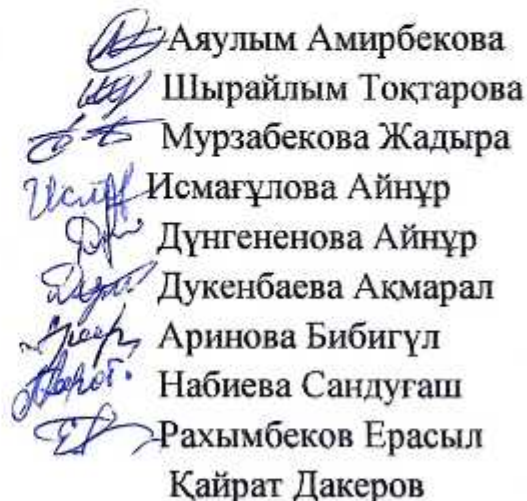 Аяулым Амирбекова
Шырайлым Тоқтарова
Мурзабекова Жадыра
Исмағұлова Айнұр
Дүнгененова Айнұр
Дукенбаева Ақмарал
Аринова Бибигүл
Набиева Сандуғаш
Рахымбеков Ерасыл
Қайрат Дакеров